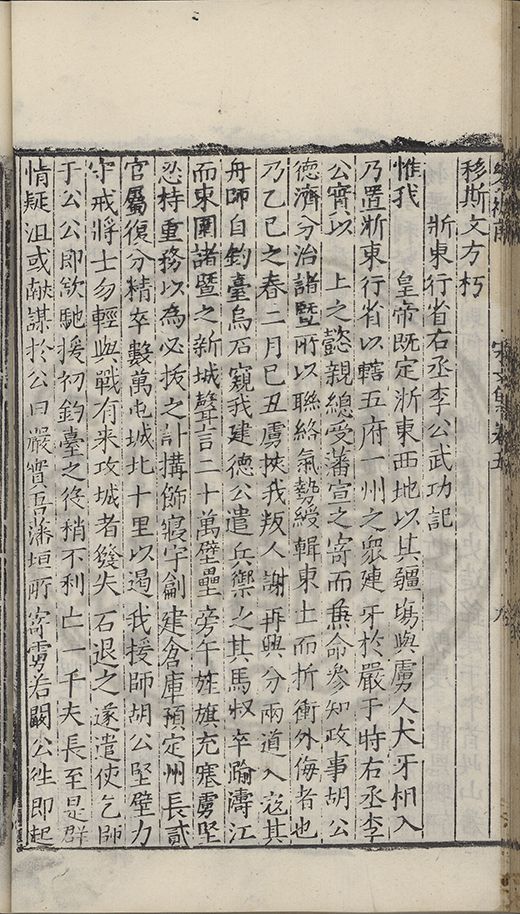 移斯文方朽
浙東行省右丞李公武功記
惟我　皇帝既定浙東西地以其疆埸與虜人犬牙相入
乃置浙東行省以轄五府一州之衆建牙於嚴于時右丞李
公實以　上之懿親總受藩宣之寄而兼命參知政事胡公
德濟分治諸暨所以聯絡氣勢綏輯東土而折衝外侮者也
乃乙巳之春二月己丑虜挾我叛人謝再興分兩道入寇其
舟師自釣臺烏石窺我建德公遣兵禦之其馬叔卒踰濤江
而東圍諸暨之新城聲言二十萬壁壘旁午旌旗充塞虜堅
忍持重務以為必拔之計搆飾寢宇剏建倉庫預定州長貳
官屬復分精卒數萬屯城北十里以遏我援師胡公堅壁力
守戒將士勿輕與戰有来攻城者發矢石退之遂遣使乞師
于公公即欲馳援初釣臺之役稍不利亡一千夫長至是群
情疑沮或献謀於公曰嚴實吾藩垣所寄虜若闞公徃即起